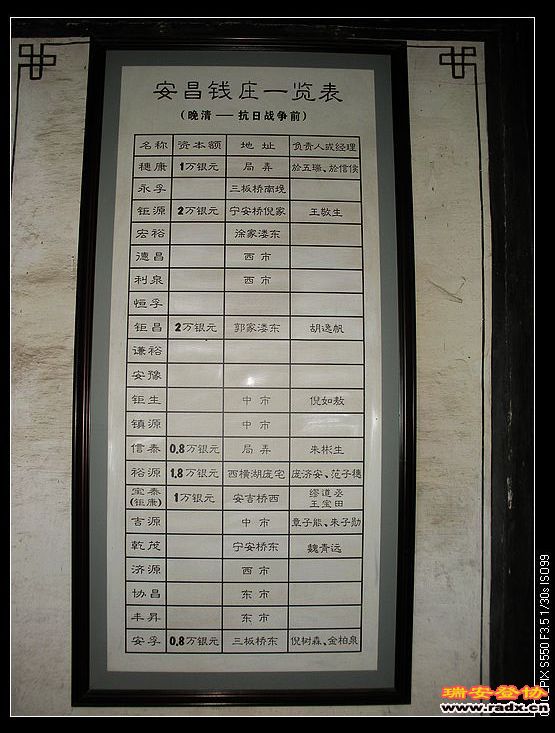 安昌钱庄一览表
(晚清—抗日战争前)
名称 资本额 地址 负责人或经理
穗康 1万银元 局弄 於五瑞、於信侯
永孚 三板桥南堍
钜源 2万银元 宁安桥倪家 王敬生
宏裕 涂家溇东
德昌 西市
利泉 西市
恒孚
钜昌 2万银元 郭家溇东 胡逸帆
谦裕
安豫
钜生 中市 倪如敖
镇源 中市
信泰 0.8万银元 局弄 朱彬生
裕源 1.8万银元 西横湖庞宅 庞济安、范子穗
宝泰(钜康) 1万银元 安吉桥西 缪道丞 王宝田
吉源 中市 章子能、朱子勋
乾茂 宁安桥东 魏青远
济源 西市
协昌 东市
丰昇 东市
安孚 0.8万银元 三板桥东 倪树森、金柏泉
瑞安登协
www.radx.cn
PIX S550 F3.5 1/30s ISO99